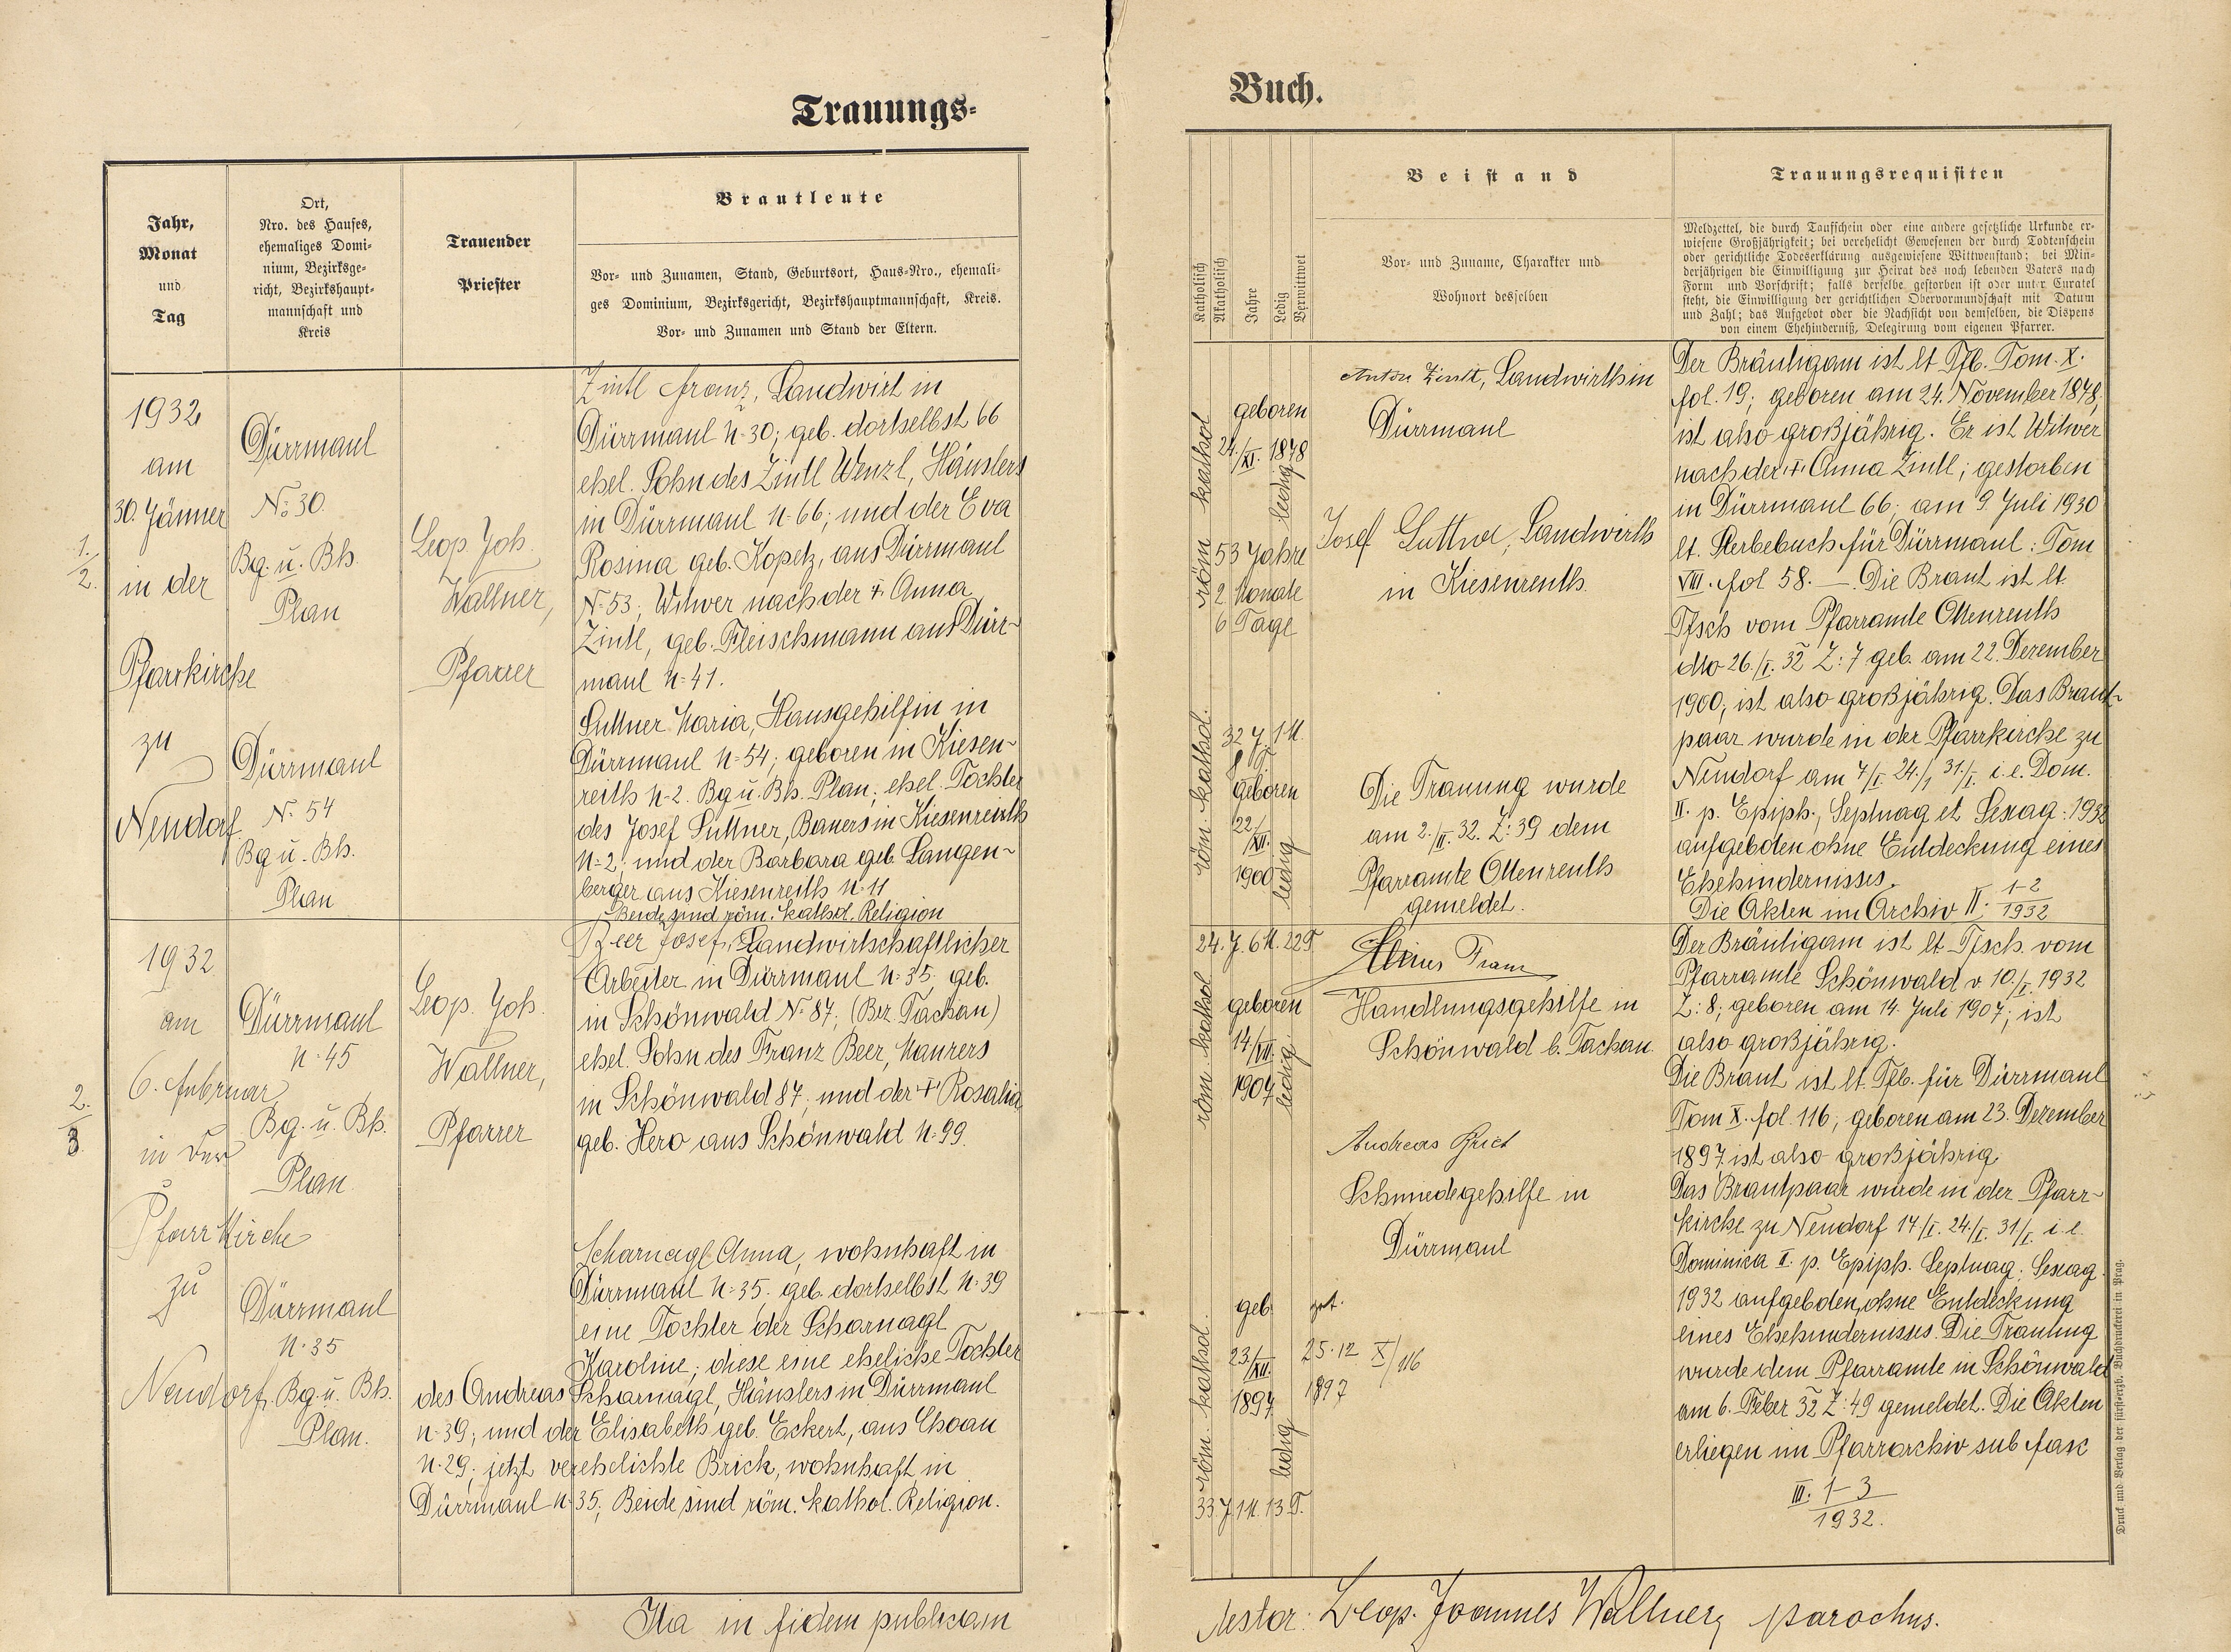 Trauungs-
Jahr,
Monat
und
Tag
Ort,
Nro. des Hauses,
ehemaliges Domi-
nium, Bezirksge-
richt, Bezirkshaupt-
mannschaft und
Kreis
Trauender
Priester
Brautleute
Vor- und Zunamen, Stand, Geburtsort, Haus-Nro., ehemali-
ges Dominium, Bezirksgericht, Bezirkshauptmannschaft, Kreis.
Vor- und Zunamen und Stand der Eltern.
1.
2.
1932
am
30. Jänner
in der
Pfarrkirche
zu
Neudorf
Dürrmaul
No 30.
Bg. u. Bh.
Plan
Dürrmaul
N. 54
Bg u. Bh.
Plan
Leop. Joh.
Wallner,
Pfarrer
Zintl Franz, Landwirt in
Dürrmaul N. 30; geb. dortselbst 66
ehel. Sohn des Zintl Wenzl, Häuslers
in Dürrmaul N. 66; und der Eva
Rosina geb. Kopetz, aus Dürrmaul
N. 53; Witwer nach der + Anna
Zintl, geb. Fleischmann aus Dürr-
maul N. 41.
Suttner Maria, Hausgehilfin in
Dürrmaul N. 54; geboren in Kiesen-
reith N. 2. Bg u. Bh. Plan; ehel. Tochter
des Josef Suttner, Bauers in Kiesenreuth
N. 2; und der Barbara geb. Langen-
berger aus Kiesenreith N. 11
Beide sind röm. kathol. Religion
2.
3.
1932
am
6. Februar
in der
Pfarrkirche
zu
Neudorf,
Dürrmaul
N. 45
Bg. u. Bh.
Plan
Dürrmaul
N. 35
Bg. u. Bh.
Plan.
Leop. Joh.
Wallner,
Pfarrer
Beer Josef, Landwirtschaftlicher
Arbeiter in Dürrmaul N. 35, geb.
in Schönwald N. 87; (Bez. Tachau)
ehel. Sohn des Franz Beer, Maurers
in Schönwald 87; und der + Rosalia
geb. Hero aus Schönwald N. 99.
Scharnagl Anna, wohnhaft in
Dürrmaul N. 35. geb. dortselbst N. 39
eine Tochter der Scharnagl
Karoline; diese eine eheliche Tochter
des Andreas Scharnagl, Häuslers in Dürrmaul
N. 39; und der Elisabeth geb. Eckert, aus Choau
N. 29; jetzt verehelichte Brich, wohnhaft in
Dürrmaul N. 35; Beide sind röm. kathol. Religion.
Ita in fidem publicam
Buch.
Katholisch
Akatholisch
Jahre
Ledig
Verwittwet
Beistand
Vor- und Zuname, Charakter und
Wohnort desselben
Trauungsrequisiten
Meldzettel, die durch Taufschein oder eine andere gesetzliche Urkunde er-
wiesene Großjährigkeit; bei verehelicht Gewesenen der durch Todtenschein
oder gerichtliche Todeserklärung ausgewiesene Wittwenstand; bei Min-
derjährigen die Einwilligung zur Heirat des noch lebenden Vaters nach
Form und Vorschrift; falls derselbe gestorben ist oder unter Curatel
steht, die Einwilligung der gerichtlichen Obervormundschaft mit Datum
und Zahl; das Aufgebot oder die Nachsicht von demselben, die Dispens
von einem Ehehinderniß, Delegirung vom eigenen Pfarrer.
röm kathol
geboren
24./XI. 1878
ledig
53 Jahre
2 Monate
6 Tage
röm. kathol.
32 J 1 M.
8 T
geboren
22/XII.
1900
ledig
Anton Zintl, Landwirth in
Dürrmaul
Josef Suttner, Landwirth
in Kiesenreuth.
Die Trauung wurde
am 2./II. 32. Z: 39 dem
Pfarramte Ottenreuth
gemeldet.
Der Bräutigam ist lt Tfb. Tom. X.
fol. 19; geboren am 24. November 1878;
ist also großjährig. Er ist Witwer
nach der + Anna Zintl; gestorben
in Dürrmaul 66; am 9. Juli 1930
lt. Sterbebuch für Dürrmaul: Tom
VIII. fol 58. — Die Braut ist lt
Tfsch vom Pfarramte Ottenreuth
dto 26./I. 32 Z: 7 geb. am 22. Dezember
1900; ist also großjährig. Das Braut-
paar wurde in der Pfarrkirche zu
Neudorf am 7/I. 24./1 31./I. i.e. Dom.
II. p. Epiph., Septuag et Sexag. 1932
aufgeboten ohne Entdeckung eines
Ehehindernisses.
Die Akten im Archiv II. 1-2/1932
24. J. 6 M. 22 T
röm kathol
geboren
14/VII.
1907
ledig
röm. kathol.
geb
23/XII.
1897
ledig
33. J. 1 M. 13 T.
Franz
Handlungsgehilfe in
Schönwald b. Tachau.
Andreas
Schmiedegehilfe in
Dürrmaul
25.12 X/116
1897
Der Bräutigam ist lt. Tfsch. vom
Pfarramte Schönwald v 10./I. 1932
Z: 8; geboren am 14. Juli 1907; ist
also großjährig.
Die Braut ist lt. Tfb. für Dürrmaul
Tom X. fol. 116; geboren am 23. Dezember
1897. ist also großjährig.
Das Brautpaar wurde in der Pfarr-
kirche zu Neudorf 17./I. 24./I. 31/I. i. e.
Dominica II. p. Epiph. Septuag. Sexag.
1932 aufgeboten, ohne Entdeckung
eines Ehehindernisses. Die Trauung
wurde dem Pfarramte in Schönwald
am 6. Feber 32 Z: 49 gemeldet. Die Akten
erliegen im Pfarrarchiv sub fasc
III. 1-3
1932.
testor: Leop. Joannes Wallner, parochus.
Druck und Verlag der fürsterzb. Buchdruckerei in Prag.